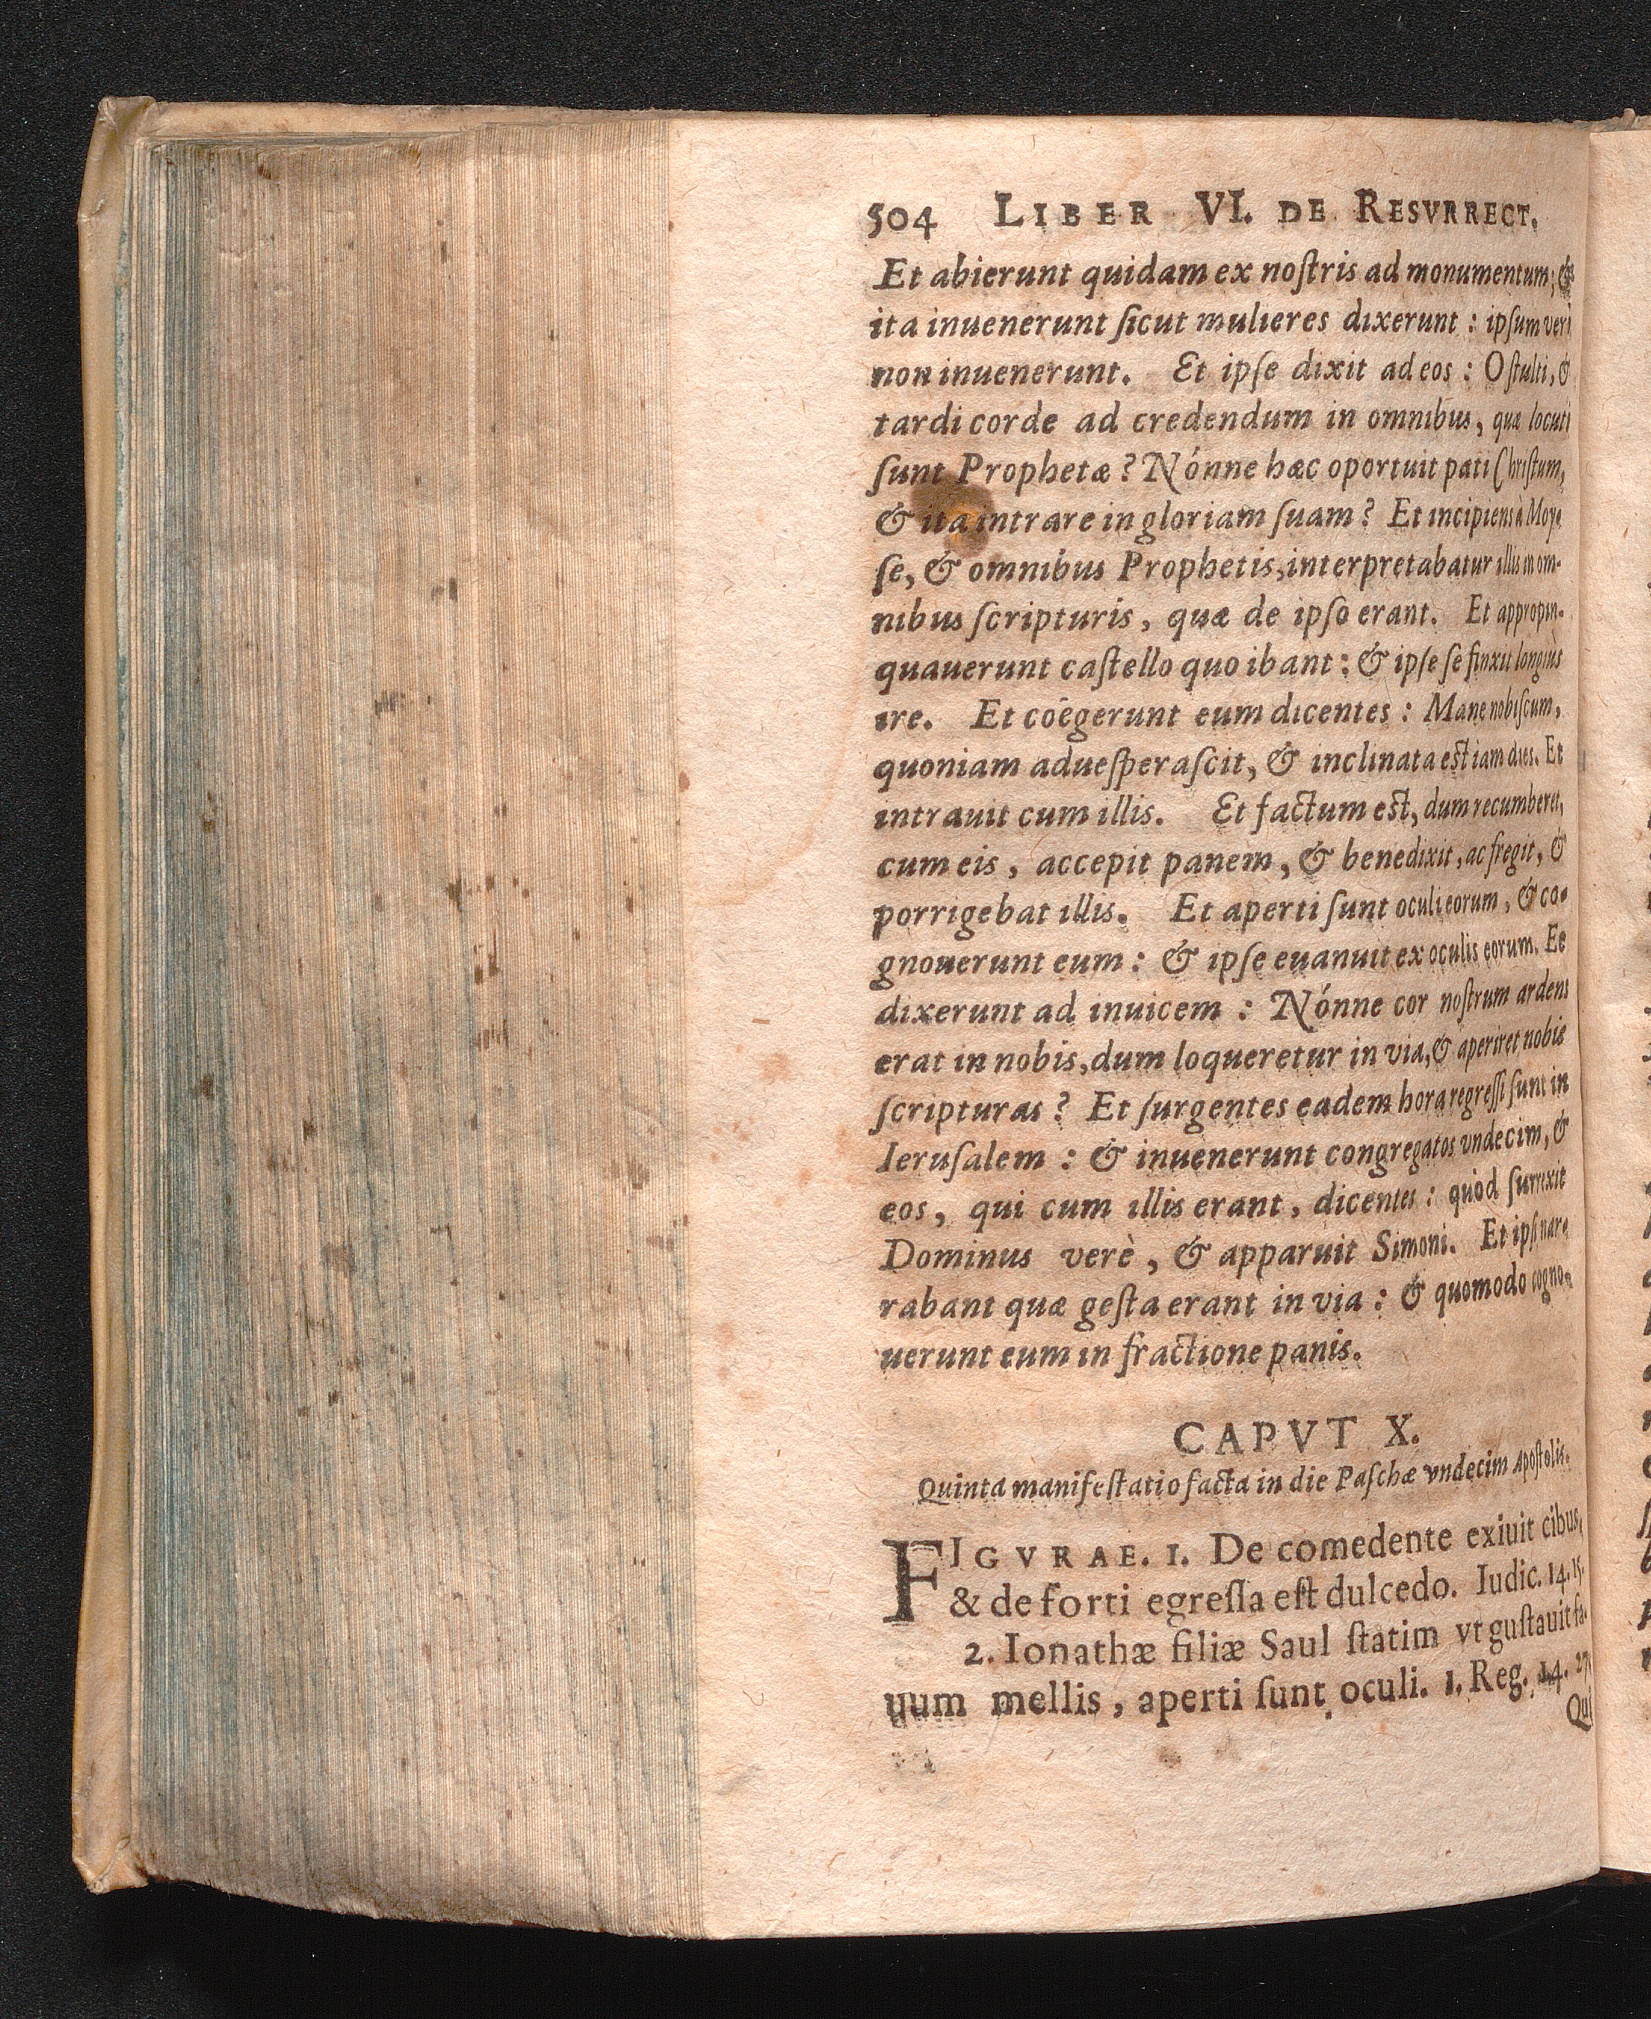 504 LIBER VI. DE RESVRRECT.
Et abierunt quidam ex noſtris ad monumentum; &
ita inuenerunt ſicut mulieres dixerunt : ipſum verò
non inuenerunt. Et ipſe dixit ad eos : O ſtulti, &
tardi corde ad credendum in omnibus, quæ locuti
ſunt Prophetæ ? Nónne hæc oportuit pati Chriſtum,
& ita intrare in gloriam ſuam ? Et incipiens à Moy-
ſe, & omnibus Prophetis, interpretabatur illis in om-
nibus ſcripturis, quæ de ipſo erant. Et appropin-
quauerunt caſtello quo ibant : & ipſe ſe finxit longiùs
ire. Et coëgerunt eum dicentes : Mane nobiſcum,
quoniam adueſperaſcit, & inclinata eſt iam dies. Et
intrauit cum illis. Et factum eſt, dum recumberet,
cum eis, accepit panem, & benedixit, ac fregit, &
porrigebat illis. Et aperti ſunt oculi eorum, & co-
gnouerunt eum : & ipſe euanuit ex oculis eorum. Et
dixerunt ad inuicem : Nónne cor noſtrum ardens
erat in nobis, dum loqueretur in via, & aperiret nobis
ſcripturas ? Et ſurgentes eadem hora regreſſi ſunt in
Ieruſalem : & inuenerunt congregatos vndecim, &
eos, qui cum illis erant, dicentes : quòd ſurrexit
Dominus verè, & apparuit Simoni. Et ipſi nar-
rabant quæ geſta erant in via : & quomodo cogno-
uerunt eum in fractione panis.
CAPVT X.
Quinta manifeſtatio facta in die Paſchæ vndecim Apoſtolis.
FIGVRAE. 1. De comedente exiuit cibus,
& de forti egreſſa eſt dulcedo. Iudic. 14. 15.
2. Ionathæ filiæ Saul ſtatim vt guſtauit fa-
uum mellis, aperti ſunt oculi. 1. Reg. 14. 27.
Qui